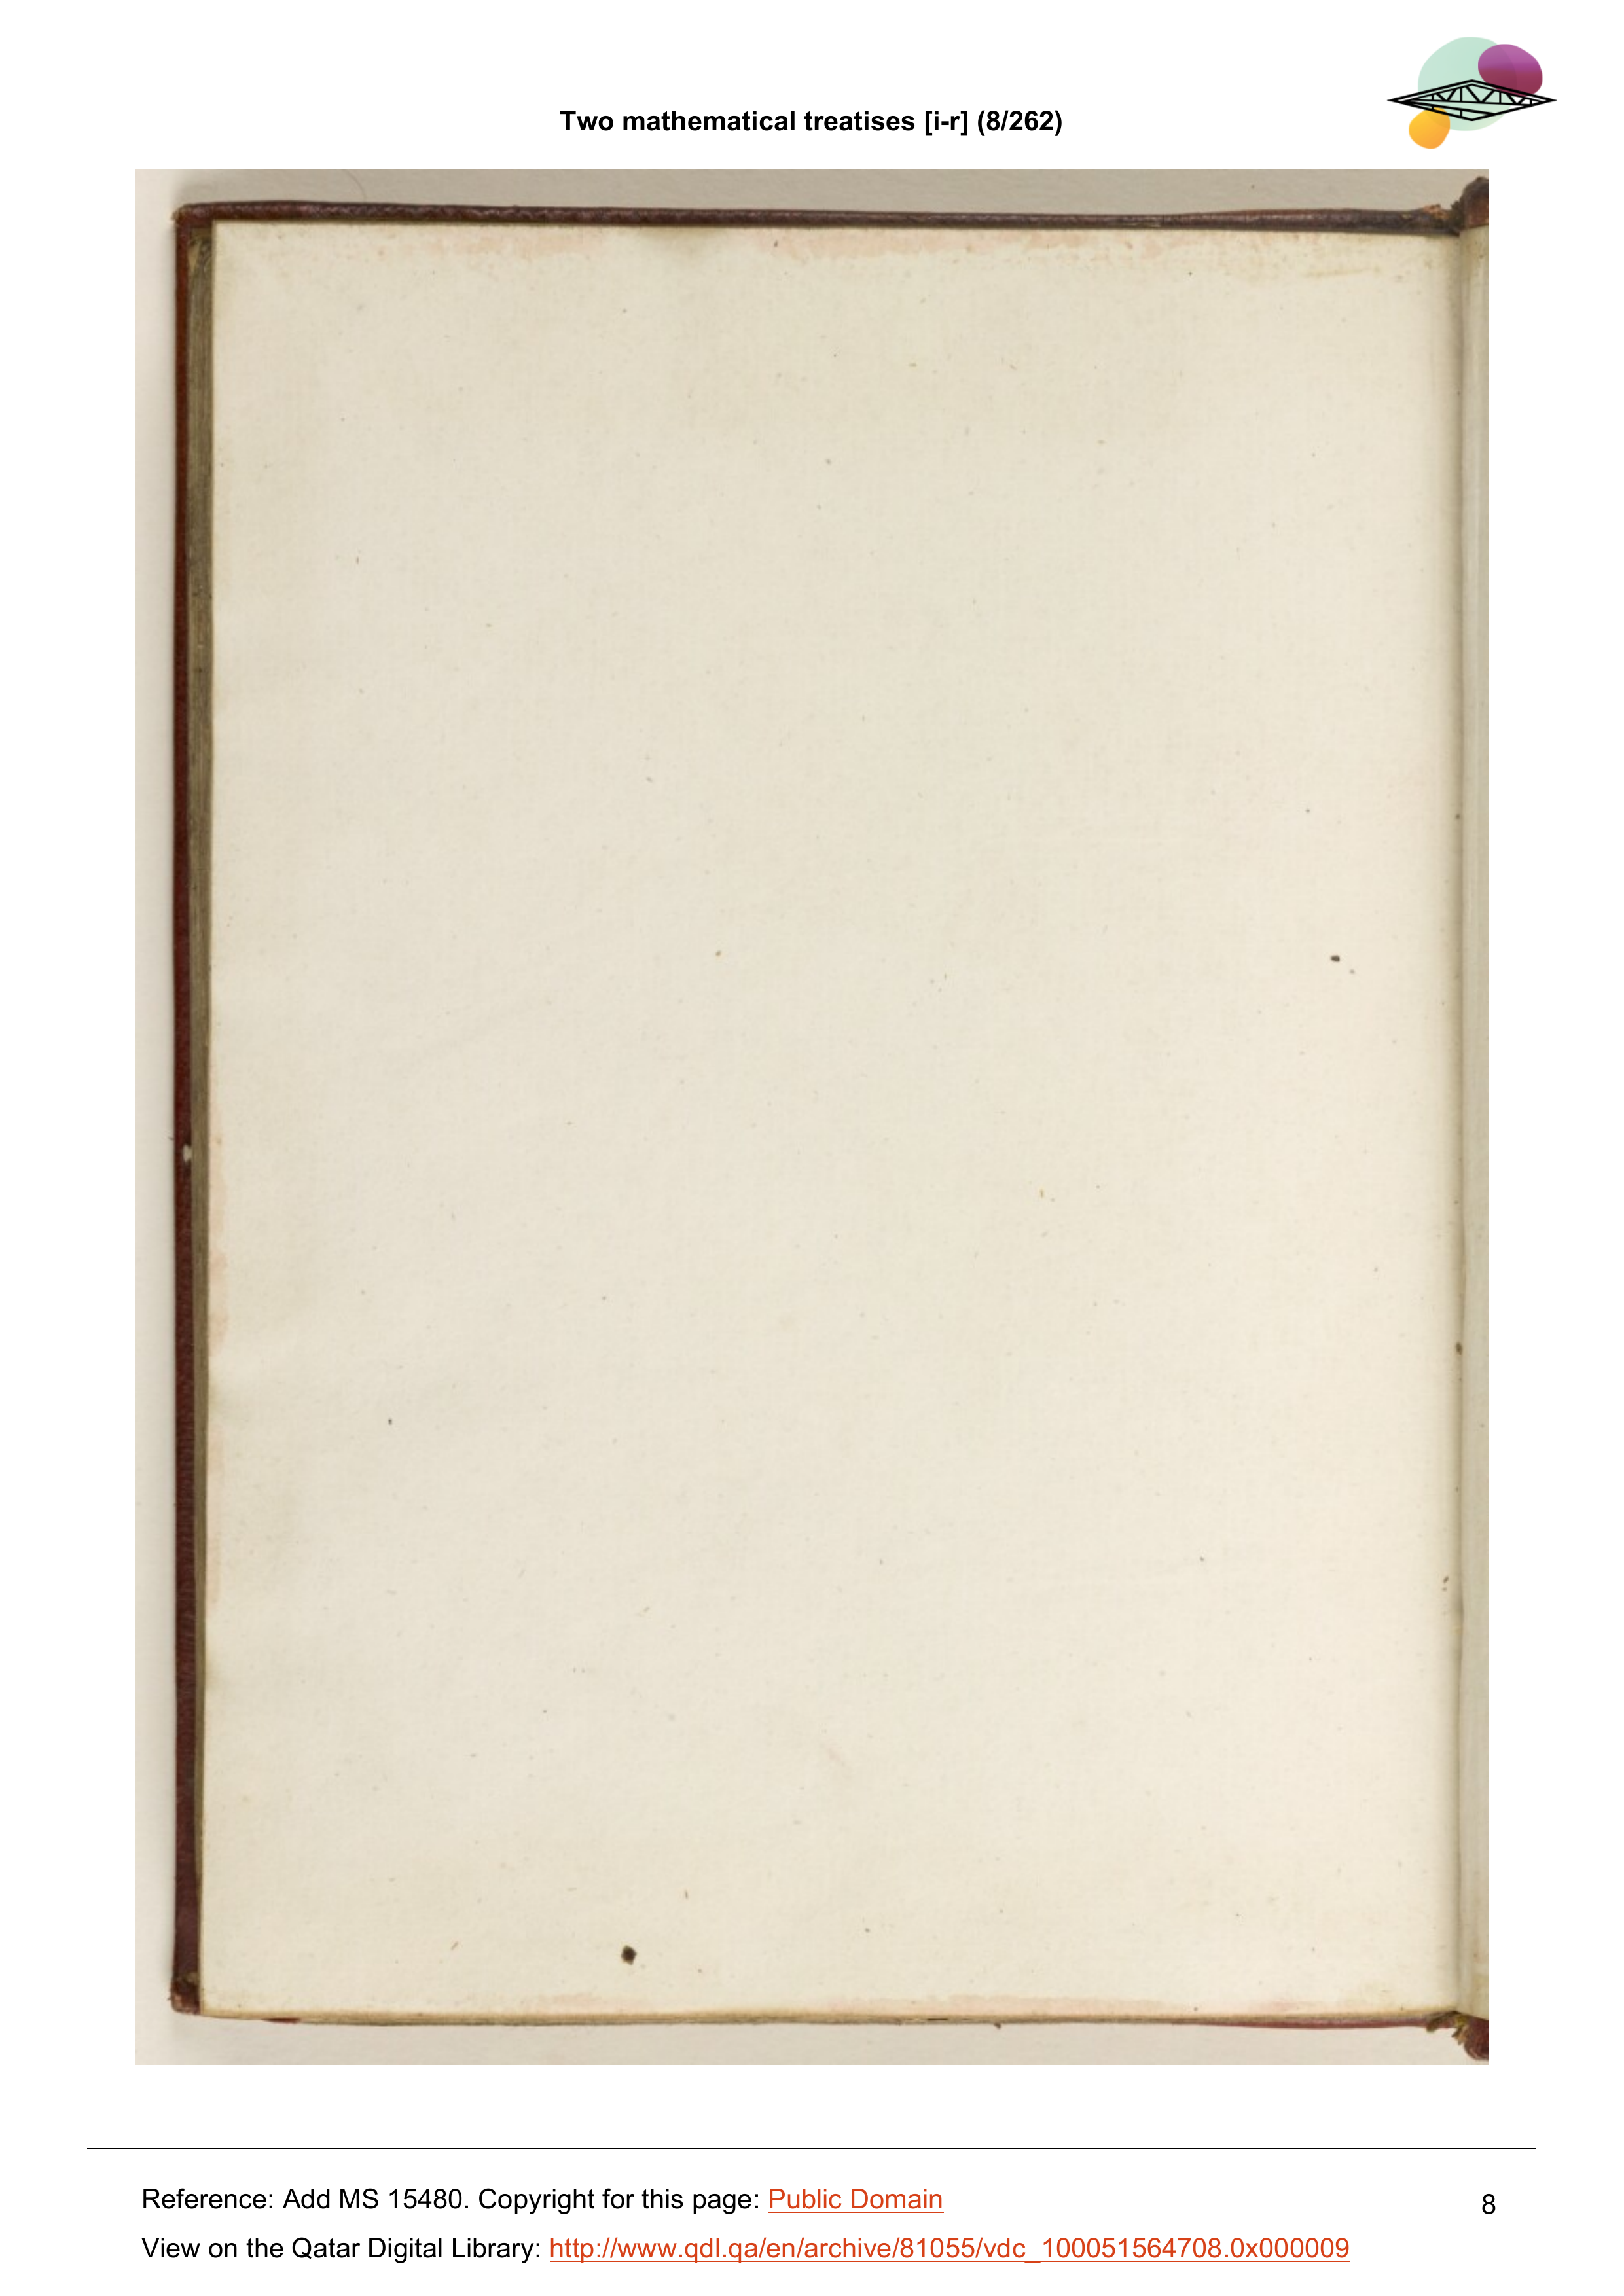 Two mathematical treatises [i-r] (8/262)
Reference: Add MS 15480. Copyright for this page: Public Domain
8
View on the Qatar Digital Library: http://www.qdl.qa/en/archive/81055/vdc_100051564708.0x000009